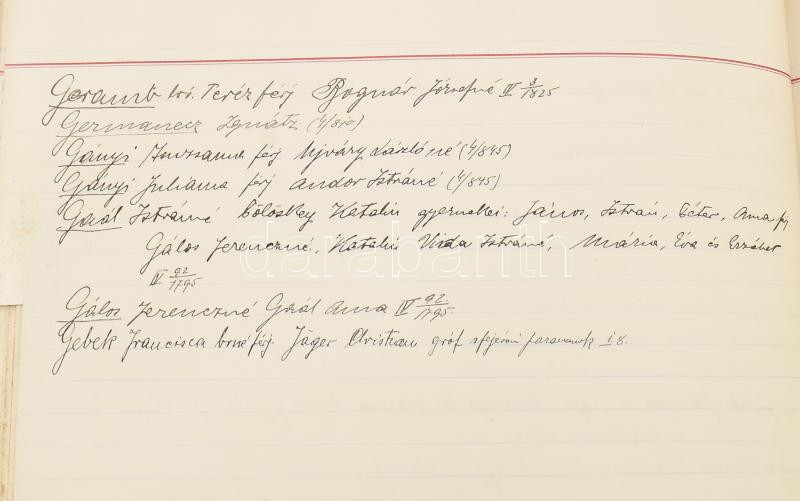 Geramb Teréz férj Bognár Józsefné IV 3/1825
Germanecz Ignátz
Gányi Zsuzsanna férj Ujváry Lászlóné (4/845)
Gányi Julianna férj Andor Istváné (4/845)
Gaál Istváné Bölöskey Katalin gyermekei: János, István, Péter, Anna fj
Gálos Ferenczné, Katalin Vida Istváné, Mária, Éva és Erzébet
IV 92/1795
Gálos Ferenczné Gaál Anna IV 92./1795.
Gebek Francisca férj. Jäger Christian gróf
darabanth